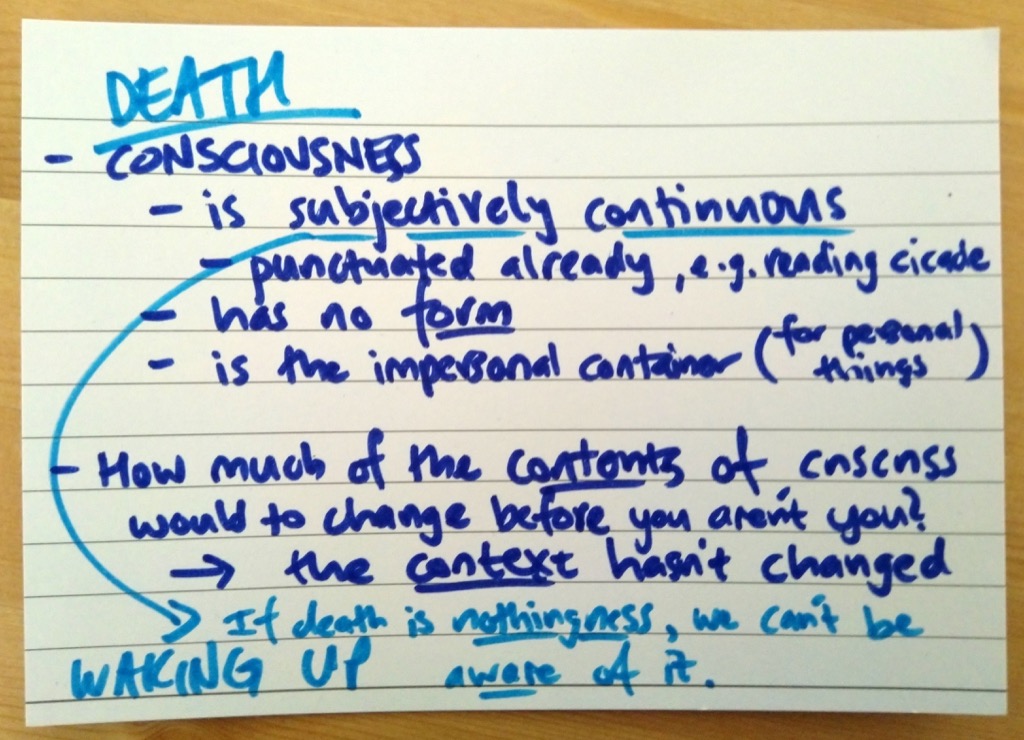 DEATH
- CONSCIOUSNESS
- is subjectively continuous
- punctuated already, e.g. reading cicade
- has no form
- is the impersonal container (for personal things)
- How much of the contents of cnscnss
would to change before you aren't you?
→ the context hasn't changed
→ If death is nothingness, we can't be
WAKING UP aware of it.